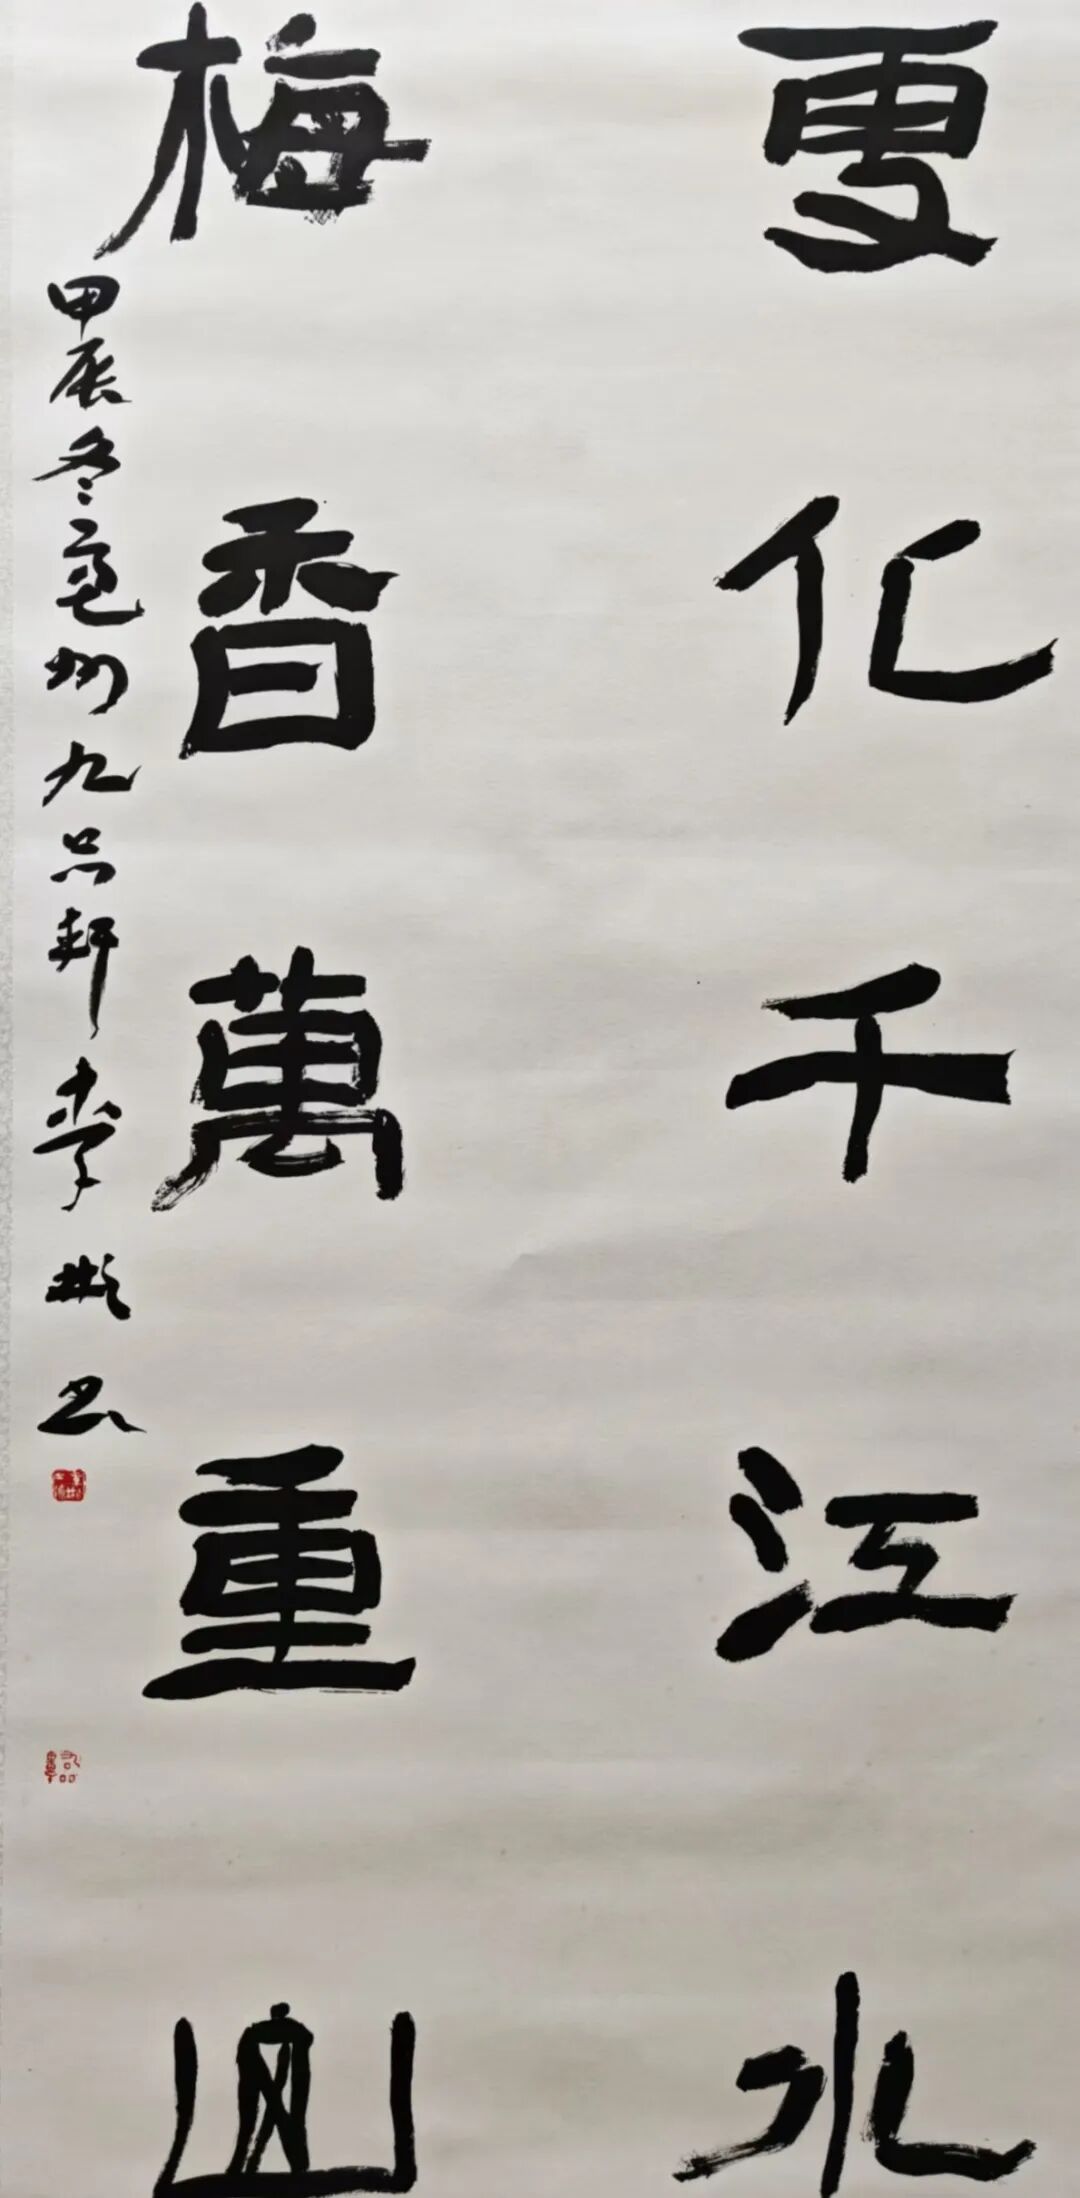 雪化千江水
梅香萬重山
甲辰冬亳州九品軒李彬书